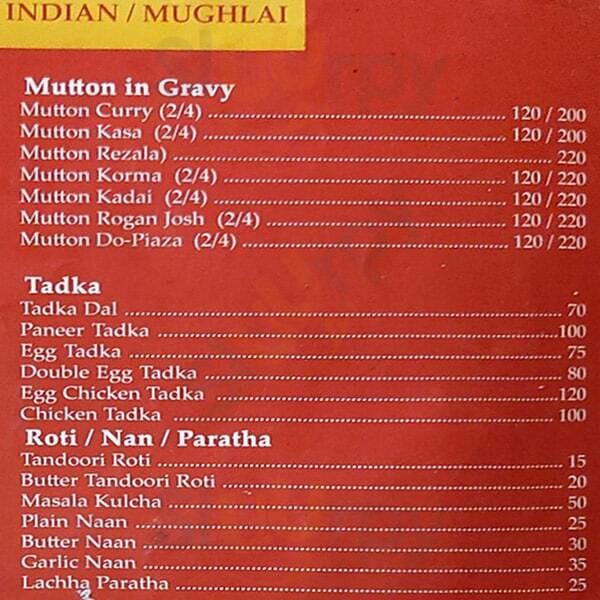 INDIAN / MUGHLAI
Mutton in Gravy
Mutton Curry (2/4) ........ 120 / 200
Mutton Kasa (2/4) ........ 120 / 200
Mutton Rezala) ........ 220
Mutton Korma (2/4) ........ 120 / 220
Mutton Kadai (2/4) ........ 120 / 220
Mutton Rogan Josh (2/4) ........ 120 / 220
Mutton Do-Piaza (2/4) ........ 120 / 220
Tadka
Tadka Dal ........ 70
Paneer Tadka ........ 100
Egg Tadka ........ 75
Double Egg Tadka ........ 80
Egg Chicken Tadka ........ 120
Chicken Tadka ........ 100
Roti / Nan / Paratha
Tandoori Roti ........ 15
Butter Tandoori Roti ........ 20
Masala Kulcha ........ 50
Plain Naan ........ 25
Butter Naan ........ 30
Garlic Naan ........ 35
Lachha Paratha ........ 25